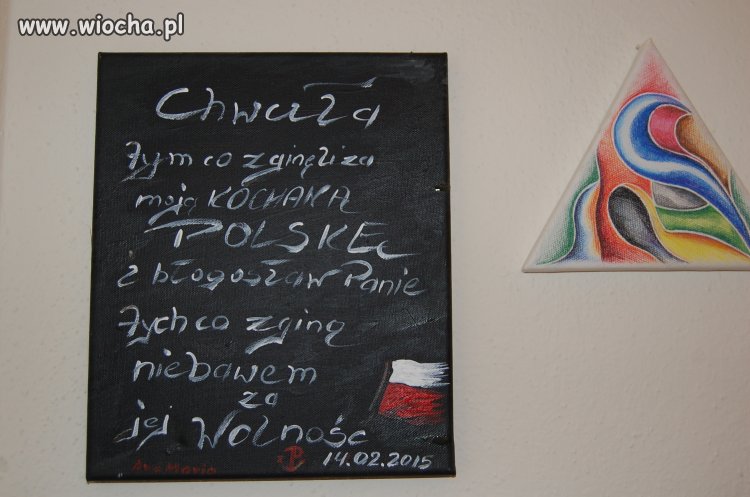 www.wiocha.pl
Chwała
tym co zginęli za
moją KOCHANĄ
POLSKĘ
i błogosław Panie
tych co zginą
niebawem
za
jej Wolność
Ave Maria
14.02.2015